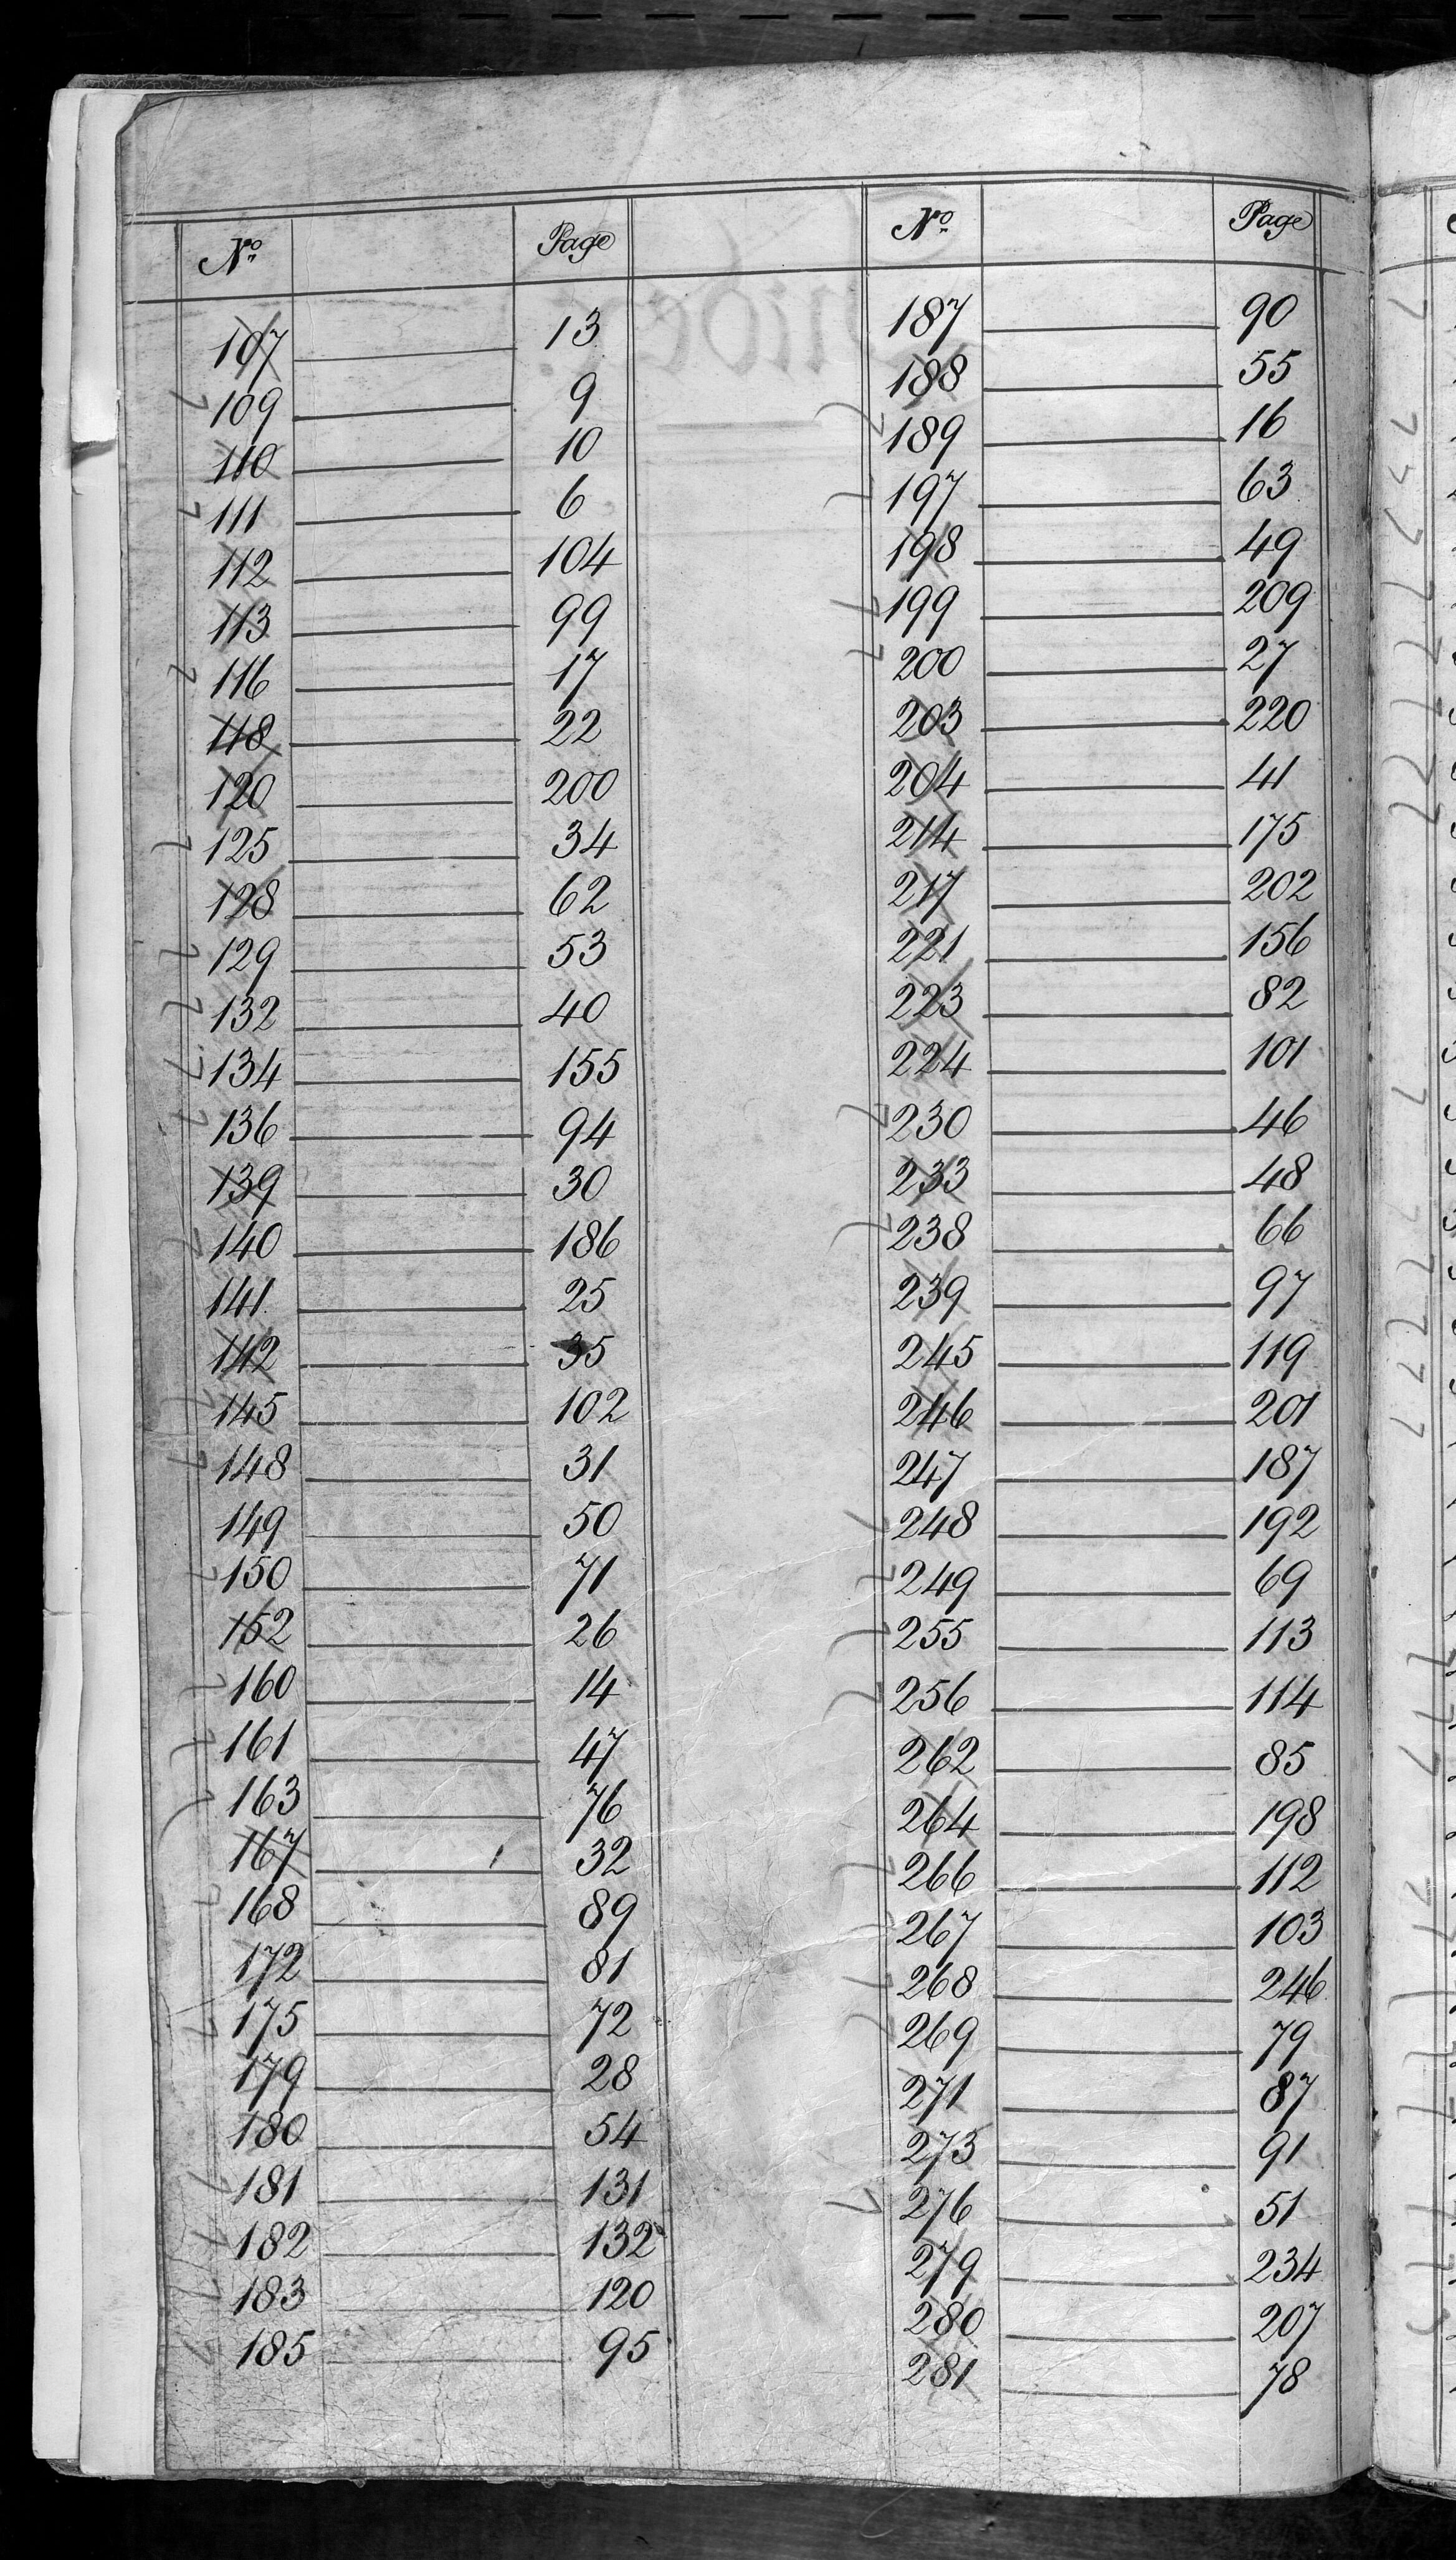 No Page
107 13
109 9
110 10
111 6
112 104
113 99
116 17
118 22
120 200
125 34
128 62
129 53
132 40
134 155
136 94
139 30
140 186
141 25
142 35
145 102
148 31
149 50
150 71
152 26
160 14
161 47
163 76
167 32
168 89
172 81
175 72
179 28
180 54
181 131
182 132
183 120
185 95
No Page
187 90
188 55
189 16
197 63
198 49
199 209
200 27
203 220
204 41
214 175
217 202
221 156
223 82
224 101
230 46
233 48
238 66
239 97
245 119
246 201
247 187
248 192
249 69
255 113
256 114
262 85
264 198
266 112
267 103
268 246
269 79
271 87
273 91
276 51
279 234
280 207
281 78